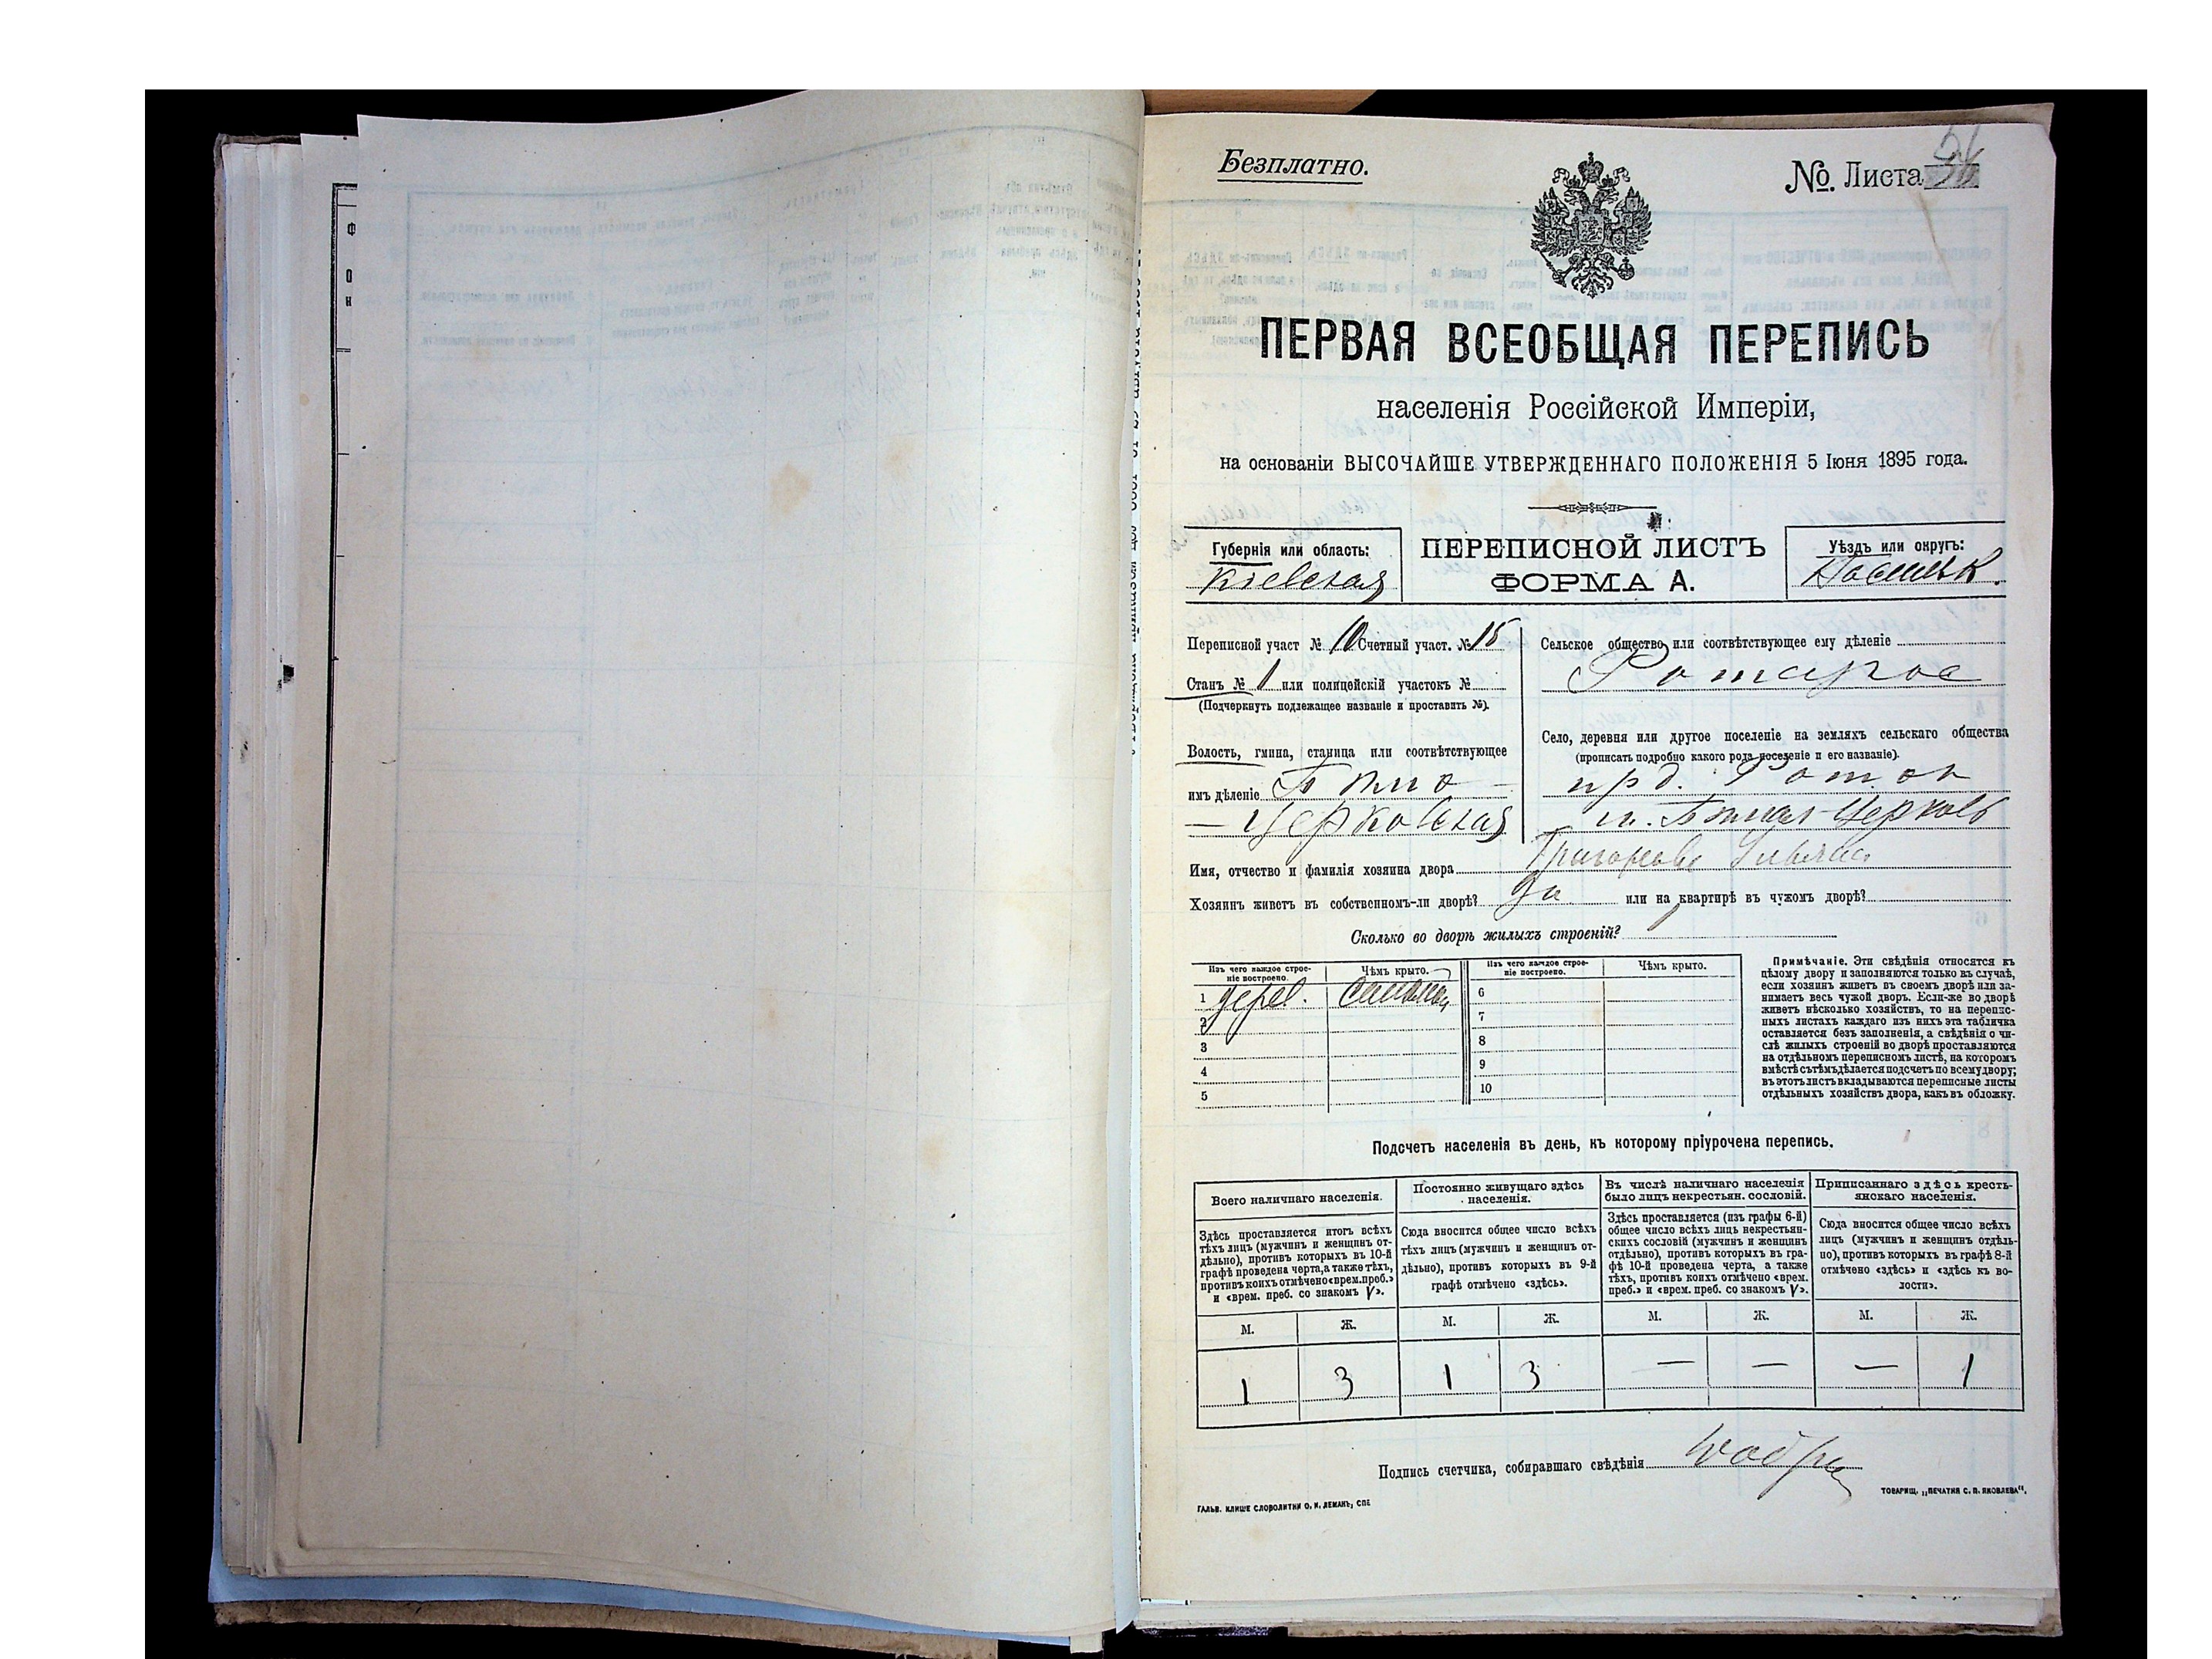 Безплатно.
№. Листа
ПЕРВАЯ ВСЕОБЩАЯ ПЕРЕПИСЬ
населенія Россійской Имперіи,
на основаніи ВЫСОЧАЙШЕ УТВЕРЖДЕННАГО ПОЛОЖЕНІЯ 5 Іюня 1895 года.
Губернія или область:
Кіевская
ПЕРЕПИСНОЙ ЛИСТЪ
ФОРМА А.
Уѣздъ или округъ:
Переписной участ № 10 Счетный участ. № 15
Станъ № 1 или полицейскій участокъ №
(Подчеркнуть подлежащее названіе и проставить №).
Волость, гмина, станица или соотвѣтствующее
имъ дѣленіе Бѣло-
-Церковская
Сельское общество или соотвѣтствующее ему дѣленіе
Село, деревня или другое поселеніе на земляхъ сельскаго общества
(прописать подробно какого рода поселеніе и его названіе).
прд. Роток
м. Бѣлая-Церковь
Имя, отчество и фамилія хозяина двора
Хозяинъ живетъ въ собственномъ-ли дворѣ? да или на квартирѣ въ чужомъ дворѣ?
Сколько во дворѣ жилыхъ строеній? 1
Изъ чего каждое строе-
ніе построено.
Чѣмъ крыто.
Изъ чего каждое строе-
ніе построено.
Чѣмъ крыто.
1 дерев.
2
3
4
5
6
7
8
9
10
Примѣчаніе. Эти свѣдѣнія относятся къ
цѣлому двору и заполняются только въ случаѣ,
если хозяинъ живетъ въ своемъ дворѣ или за-
нимаетъ весь чужой дворъ. Если-же во дворѣ
живетъ нѣсколько хозяйствъ, то на перепис-
ныхъ листахъ каждаго изъ нихъ эта табличка
оставляется безъ заполненія, а свѣдѣнія о чи-
слѣ жилыхъ строеній во дворѣ проставляются
на отдѣльномъ переписномъ листѣ, на которомъ
вмѣстѣ съ тѣмъ дѣлается подсчетъ по всему двору;
въ этотъ листъ вкладываются переписные листы
отдѣльныхъ хозяйствъ двора, какъ въ обложку.
Подсчетъ населенія въ день, къ которому пріурочена перепись.
Всего наличнаго населенія.
Здѣсь проставляется итогъ всѣхъ
тѣхъ лицъ (мужчинъ и женщинъ от-
дѣльно), противъ которыхъ въ 10-й
графѣ проведена черта, а также тѣхъ,
противъ коихъ отмѣчено «врем. преб.»
и «врем. преб. со знакомъ V».
Постоянно живущаго здѣсь
населенія.
Сюда вносится общее число всѣхъ
тѣхъ лицъ (мужчинъ и женщинъ от-
дѣльно), противъ которыхъ въ 9-й
графѣ отмѣчено «здѣсь».
Въ числѣ наличнаго населенія
было лицъ некрестьян. сословій.
Здѣсь проставляется (изъ графы 6-й)
общее число всѣхъ лицъ некрестьян-
скихъ сословій (мужчинъ и женщинъ
отдѣльно), противъ которыхъ въ гра-
фѣ 10-й проведена черта, а также
тѣхъ, противъ коихъ отмѣчено «врем.
преб.» и «врем. преб. со знакомъ V».
Приписаннаго здѣсь кресть-
янскаго населенія.
Сюда вносится общее число всѣхъ
лицъ (мужчинъ и женщинъ отдѣль-
но), противъ которыхъ въ графѣ 8-й
отмѣчено «здѣсь» и «здѣсь къ во-
лости».
М. Ж. М. Ж. М. Ж. М. Ж.
1 3 1 3 — — — 1
Подпись счетчика, собиравшаго свѣдѣнія
ГАЛЬВ. КЛИШЕ СЛОВОЛИТНИ О. И. ЛЕМАНЪ, СПБ
ТОВАРИЩ. „ПЕЧАТНЯ С. П. ЯКОВЛЕВА".